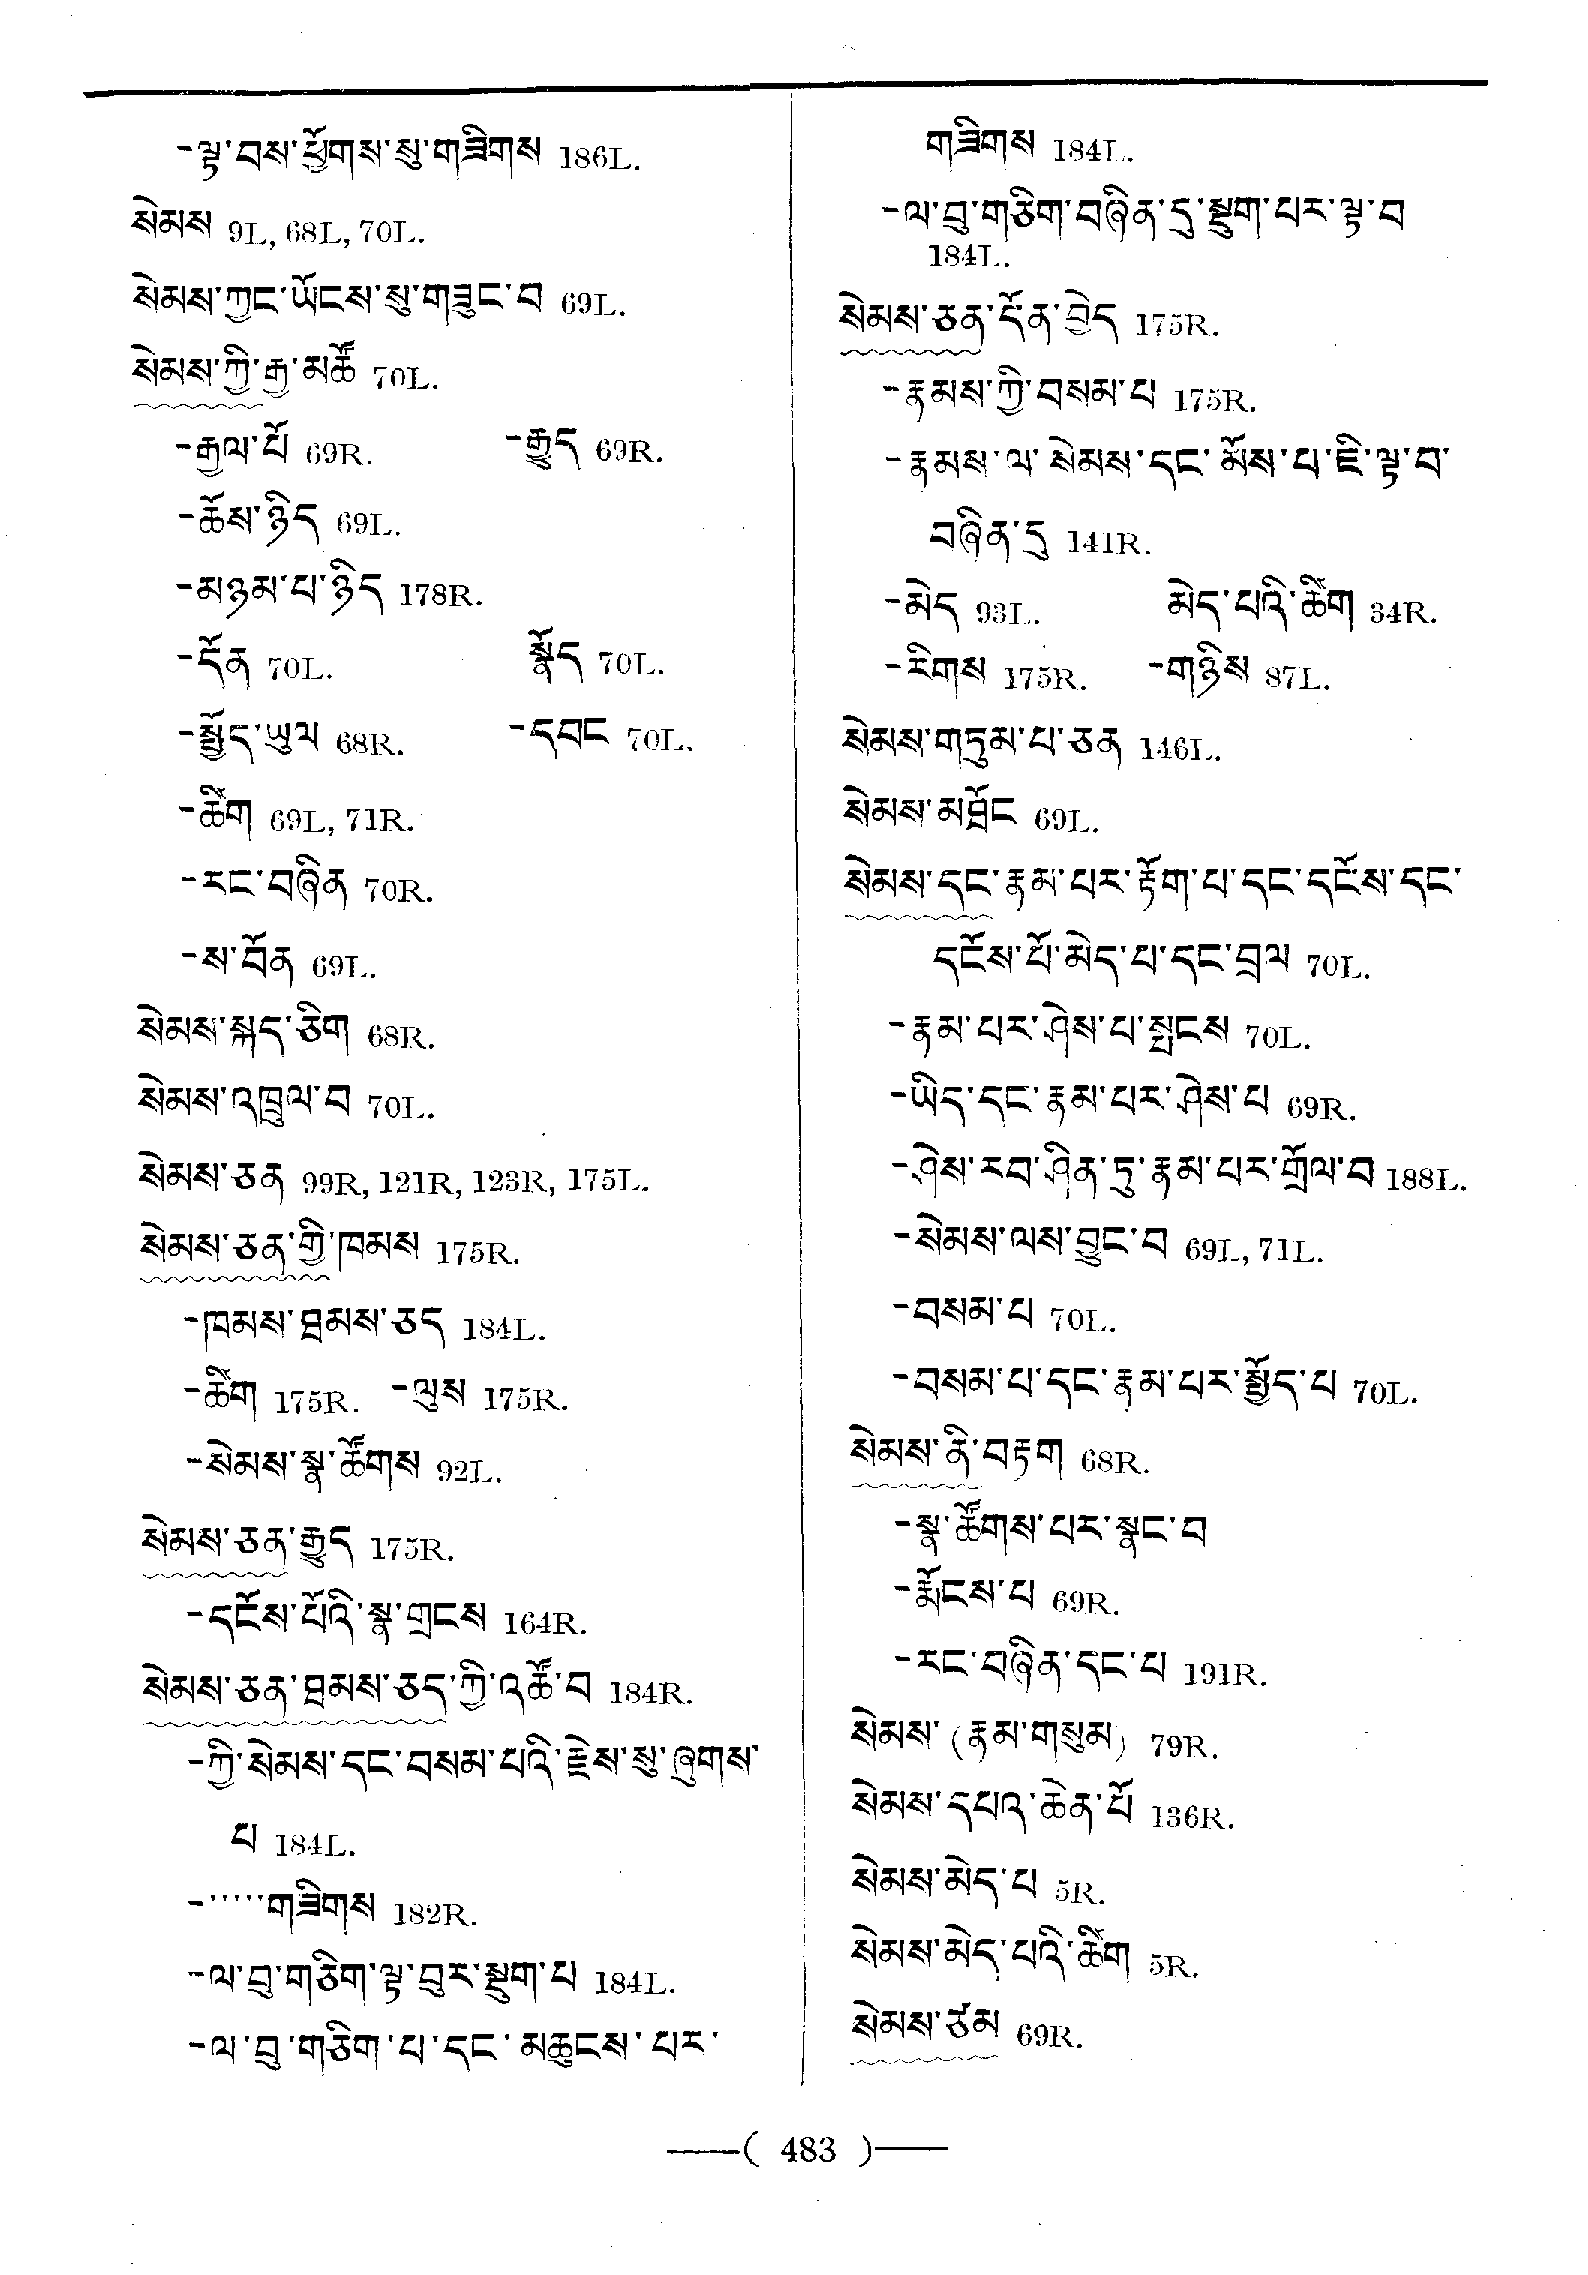 -ལྟ་བས་ཕྱོགས་སུ་གཟིགས 186L.
སེམས 9L, 68L, 70L.
སེམས་ཀྱང་ཡོངས་སུ་གཟུང་བ 69L.
སེམས་ཀྱི་རྒྱ་མཚོ 70L.
-རྒྱལ་པོ 69R. -རྒྱུད 69R.
-ཆོས་ཉིད 69L.
-མཉམ་པ་ཉིད 178R.
-དོན 70L. སྣོད 70L.
-སྤྱོད་ཡུལ 68R. -དབང 70L.
-ཚིག 69L, 71R.
-རང་བཞིན 70R.
-ས་བོན 69L.
སེམས་སྐད་ཅིག 68R.
སེམས་འཁྲུལ་བ 70L.
སེམས་ཅན 99R, 121R, 123R, 175L.
སེམས་ཅན་གྱི་ཁམས 175R.
-ཁམས་ཐམས་ཅད 184L.
-ཚིག 175R. -ལུས 175R.
-སེམས་སྣ་ཚོགས 92L.
སེམས་ཅན་རྒྱུད 175R.
-དངོས་པོའི་སྣ་གྲངས 164R.
སེམས་ཅན་ཐམས་ཅད་ཀྱི་འཚོ་བ 184R.
-ཀྱི་སེམས་དང་བསམ་པའི་རྗེས་སུ་ཞུགས་
པ 184L.
-་་་་་གཟིགས 182R.
-ལ་བུ་གཅིག་ལྟ་བུར་སྡུག་པ 184L.
-ལ་བུ་གཅིག་པ་དང་མཚུངས་པར་
གཟིགས 184L.
-ལ་བུ་གཅིག་བཞིན་དུ་སྡུག་པར་ལྟ་བ
184L.
སེམས་ཅན་དོན་བྱེད 175R.
-རྣམས་ཀྱི་བསམ་པ 175R.
-རྣམས་ལ་སེམས་དང་མོས་པ་ཇི་ལྟ་བ་
བཞིན་དུ 141R.
-མེད 93L. མེད་པའི་ཚིག 34R.
-རིགས 175R. -གཉིས 87L.
སེམས་གཏུམ་པ་ཅན 146L.
སེམས་མཐོང 69L.
སེམས་དང་རྣམ་པར་རྟོག་པ་དང་དངོས་དང་
དངོས་པོ་མེད་པ་དང་བྲལ 70L.
-རྣམ་པར་ཤེས་པ་སྤངས 70L.
-ཡིད་དང་རྣམ་པར་ཤེས་པ 69R.
-ཤེས་རབ་ཤིན་ཏུ་རྣམ་པར་གྲོལ་བ 188L.
-སེམས་ལས་བྱུང་བ 69L, 71L.
-བསམ་པ 70L.
-བསམ་པ་དང་རྣམ་པར་སྤྱོད་པ 70L.
སེམས་ནི་བརྟག 68R.
-སྣ་ཚོགས་པར་སྣང་བ
-རྨོངས་པ 69R.
-རང་བཞིན་དང་པ 191R.
སེམས་ (རྣམ་གསུམ) 79R.
སེམས་དཔའ་ཆེན་པོ 136R.
སེམས་མེད་པ 5R.
སེམས་མེད་པའི་ཚིག 5R.
སེམས་ཙམ 69R.
—( 483 )—